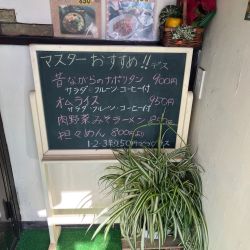 850
マスターおすすめ!!デス
昔ながらのナポリタン 900円
サラダ・フルーツ・コーヒー付
オムライス 950円
サラダ・フルーツ・コーヒー付
肉野菜みそラーメン
担々めん 800円より
1・2・3辛